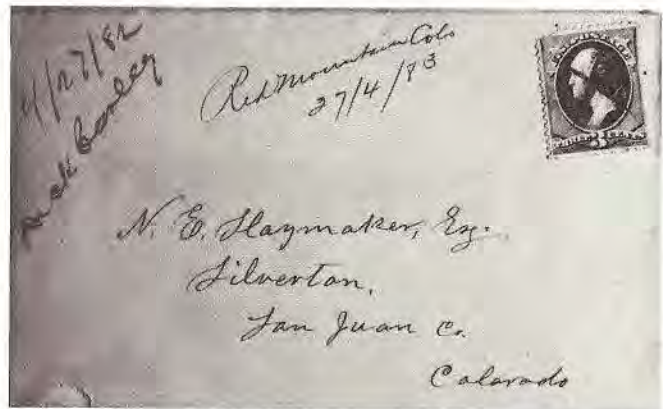 4/27/82
Red Mountain Colo
27/4/83
N. E. Haymaker, Esq.
Silverton,
San Juan Co.
Colorado